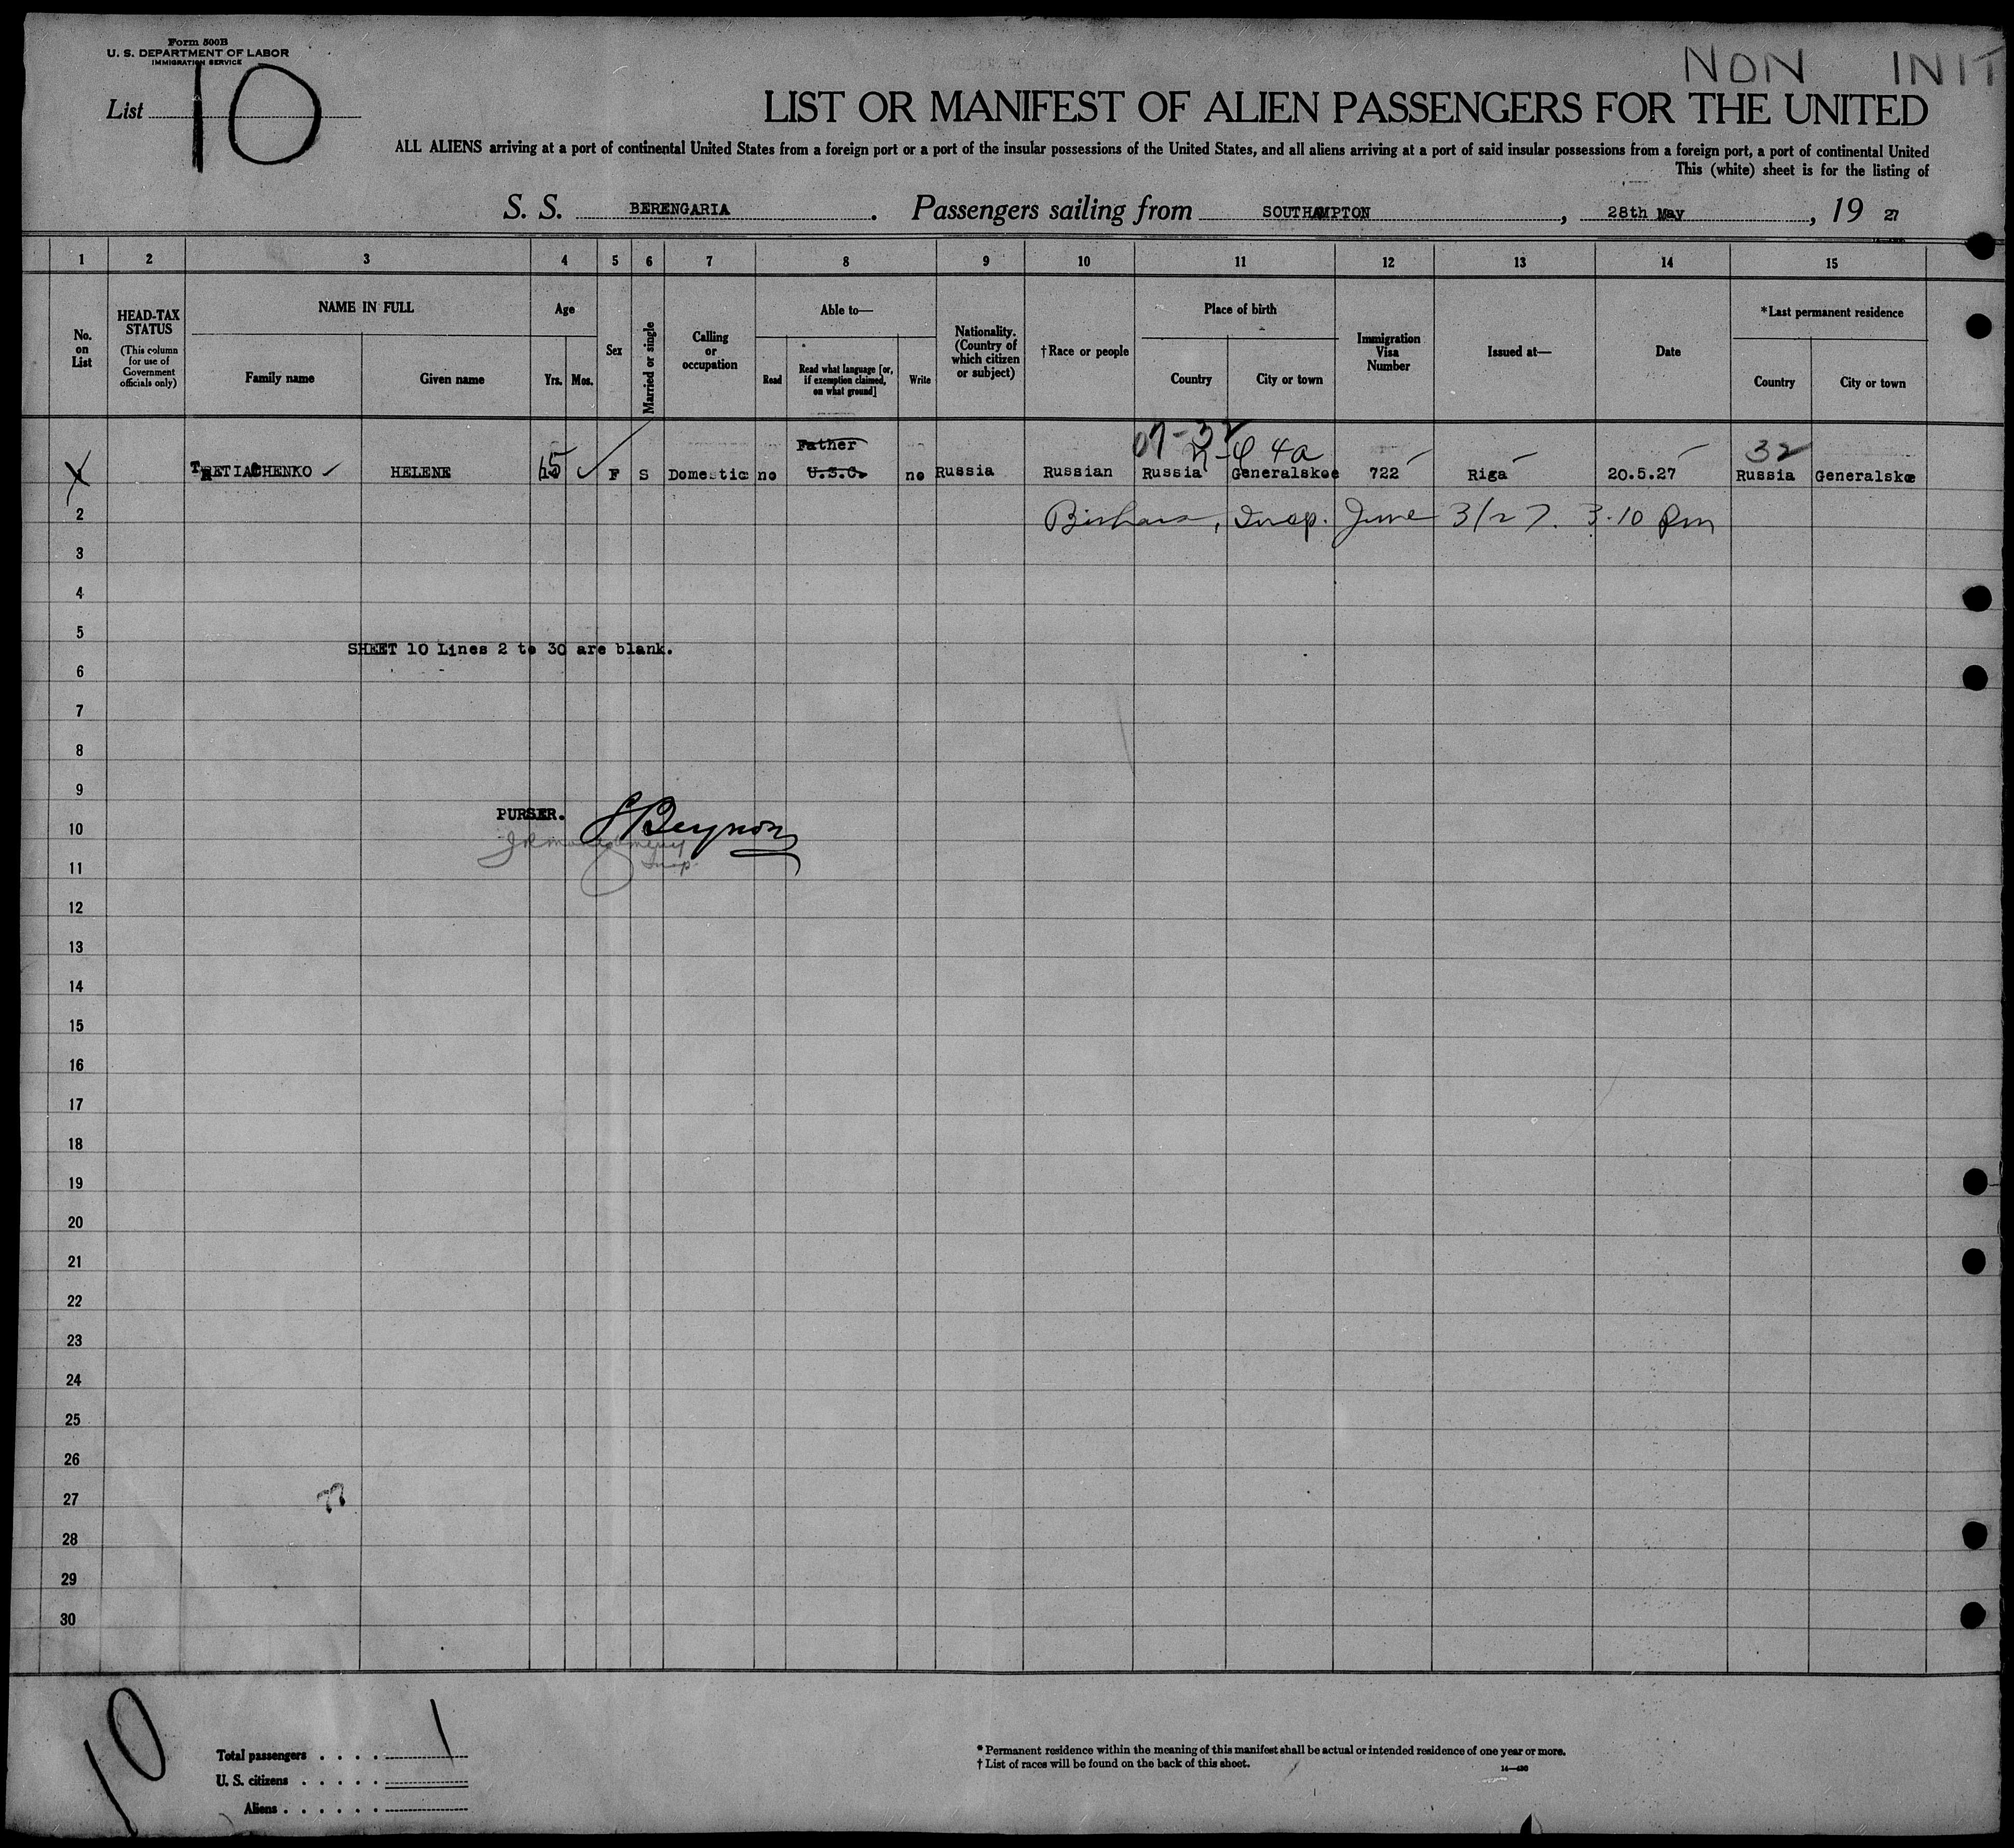 Form 500B
U. S. DEPARTMENT OF LABOR
IMMIGRATION SERVICE
NON INIT
List 10
LIST OR MANIFEST OF ALIEN PASSENGERS FOR THE UNITED
ALL ALIENS arriving at a port of continental United States from a foreign port or a port of the insular possessions of the United States, and all aliens arriving at a port of said insular possessions from a foreign port, a port of continental United
This (white) sheet is for the listing of
S. S. BERENGARIA. Passengers sailing from SOUTHAMPTON, 28th May, 19 27
1 2 3 4 5 6 7 8 9 10 11 12 13 14 15
No. on List
HEAD-TAX STATUS (This column for use of Government officials only)
NAME IN FULL
Family name Given name
Age
Yrs. Mos.
Sex
Married or single
Calling or occupation
Able to—
Read
Read what language [or, if exemption claimed, on what ground]
Write
Nationality. (Country of which citizen or subject)
†Race or people
Place of birth
Country City or town
Immigration Visa Number
Issued at—
Date
*Last permanent residence
Country City or town
Father 07-32 4a 32
TRETIACHENKO HELENE 15 F S Domestic no U.S.C. no Russia Russian Russia Generalskoe 722 Riga 20.5.27 Russia Generalskoe
2 Insp. June 3/27. 3.10 Pm
3
4
5
SHEET 10 Lines 2 to 30 are blank.
6
7
8
9
PURSER. Beynon
10
Insp.
11
12
13
14
15
16
17
18
19
20
21
22
23
24
25
26
27
28
29
30
10
Total passengers . . . . 1
U. S. citizens . . . . .
Aliens . . . . . .
* Permanent residence within the meaning of this manifest shall be actual or intended residence of one year or more.
† List of races will be found on the back of this sheet.
14—430